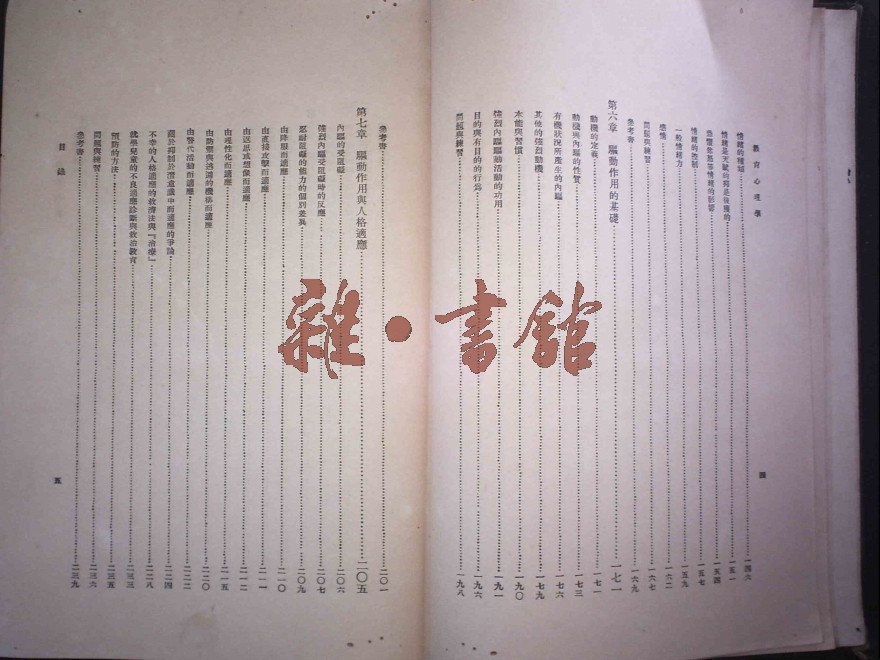 教育心理學
四
情緒的種類……一四六
情緒是天賦的抑是後獲的……一五一
急性焦慮等情緒的影響……一五四
情緒的控制……一五七
一般情緒力……一五九
感情……一六二
問題與練習……一六七
參考書……一六九
第六章 驅動作用的基礎……一七一
動機的定義……一七一
動機與內驅的性質……一七三
有機狀況所產生的內驅……一七六
其他的強烈動機……一七九
本能與習慣……一九〇
強烈內驅驅動活動的功用……一九一
目的與有目的的行為……一九六
問題與練習……一九八
參考書……二〇一
第七章 驅動作用與人格適應……二〇五
內驅的受阻礙……二〇六
強烈內驅受阻礙時的反應……二〇七
忍耐阻礙的能力的個別差異……二〇九
由降服而適應……二一〇
由直接攻擊而適應……二一一
由返思或想像而適應……二一二
由理性化而適應……二一五
由防禦與逃避的機構而適應……二二〇
由替代活動而適應……二二二
關於抑制於潛意識中而適應的爭論……二二四
不幸的人格適應的救濟法與『治療』……二二八
就學兒童的不良適應診斷與救治教育……二三三
預防的方法……二三五
問題與練習……二三六
參考書……二三九
目錄
五
雜·書館